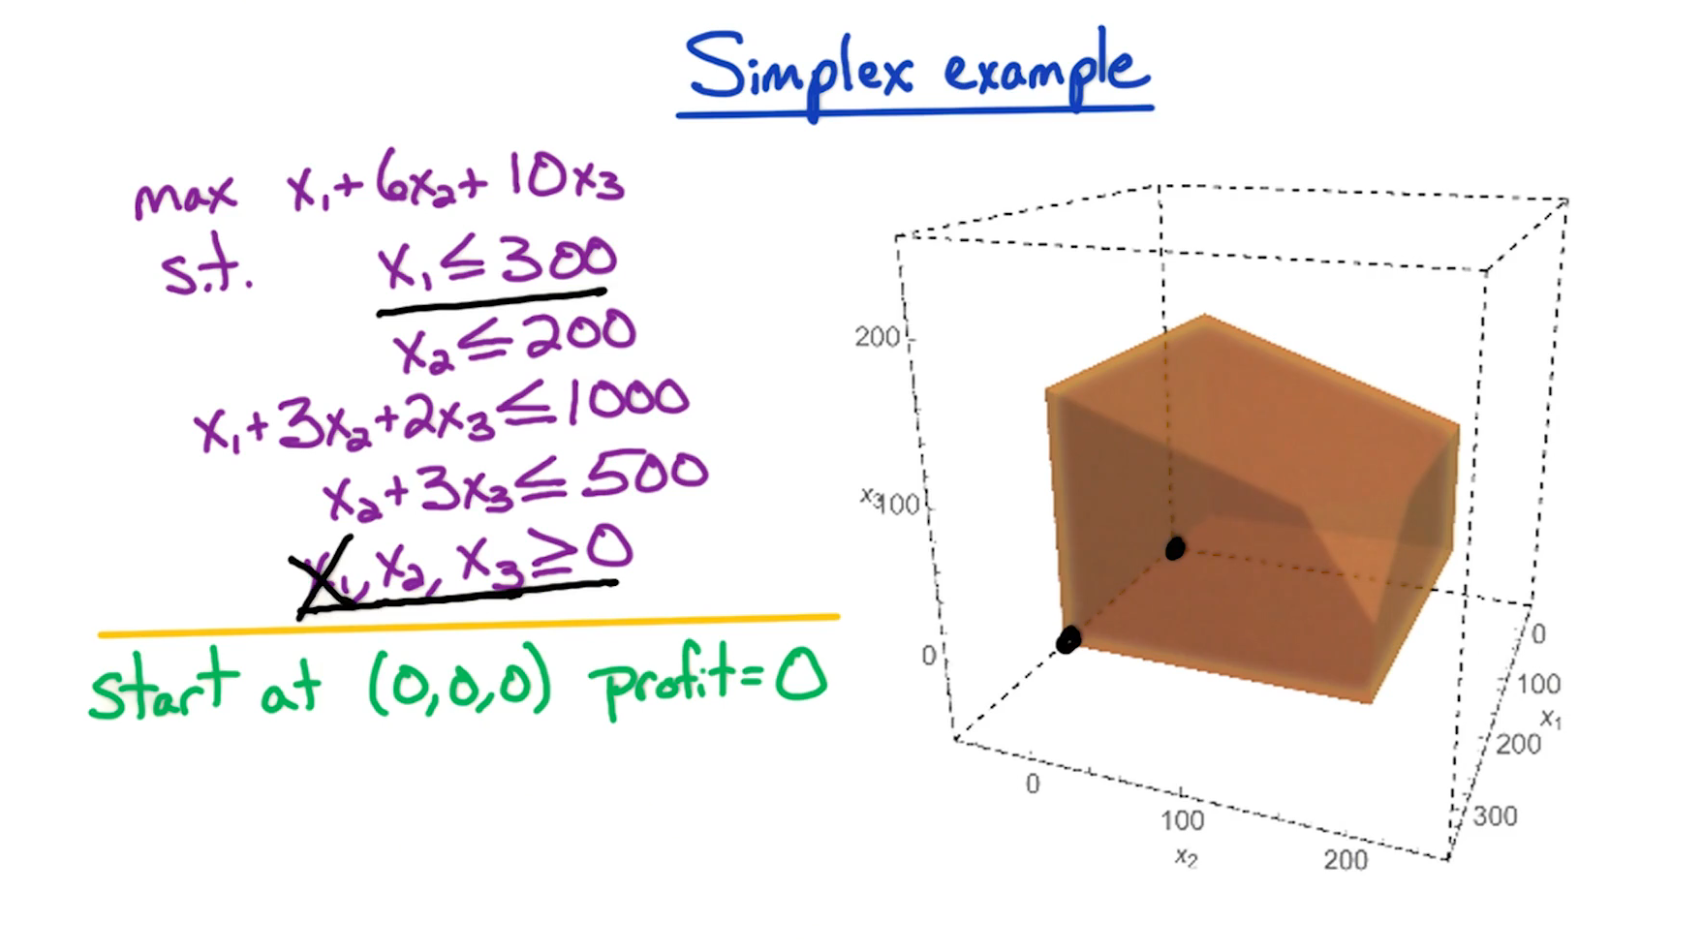 Simplex example
max x₁+6x₂+10x₃
s.t. x₁≤300
x₂≤200
x₁+3x₂+2x₃≤1000
x₂+3x₃≤500
x₁, x₂, x₃≥0
start at (0,0,0) profit=0
200
x₃
100
0
0
100
x₂
200
0
100
x₁
200
300